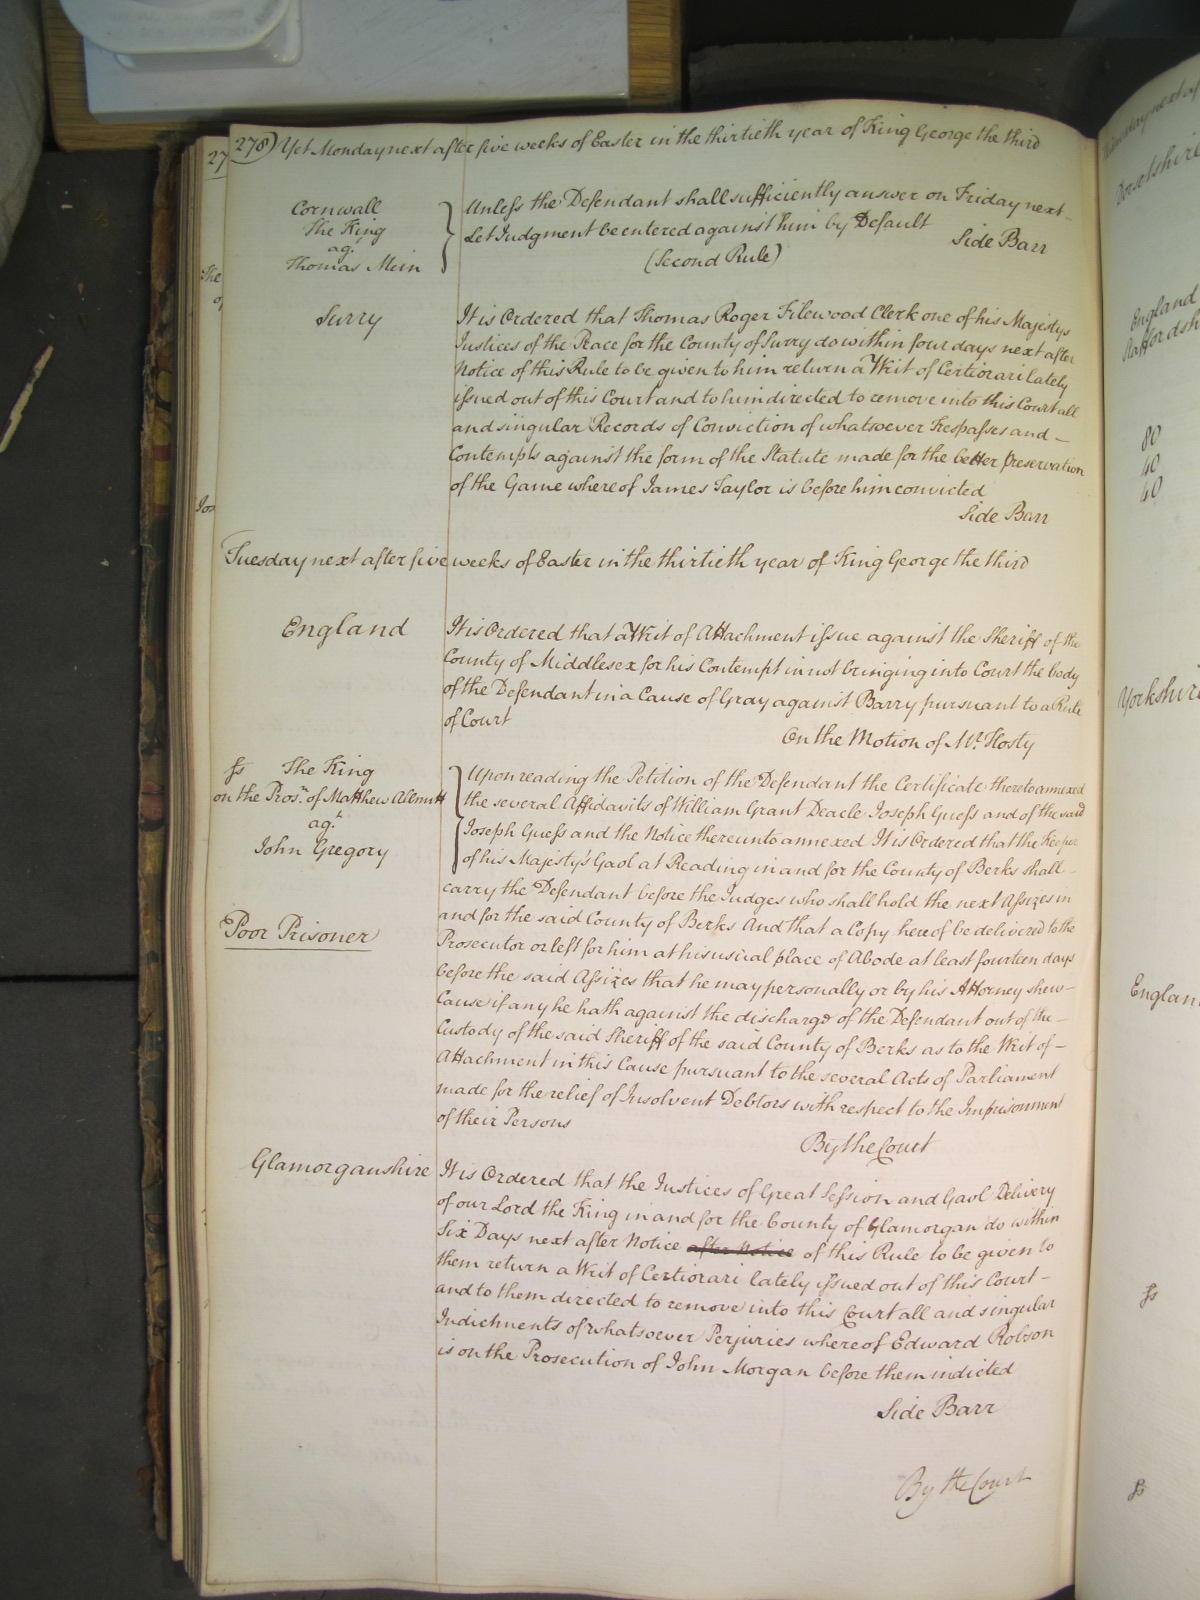 278) Yet Monday next after five weeks of Easter in the thirtieth year of King George the third
Cornwall
The King
agt
Thomas Mein
Unless the Defendant shall sufficiently answer on Friday next
Let Judgment be entered against him by Default
Side Barr
(Second Rule)
Surry
It is Ordered that Thomas Roger Filewood Clerk one of his Majestys
Justices of the Peace for the County of Surry do within four days next after
Notice of this Rule to be given to him return a Writ of Certiorari lately
issued out of this Court and to him directed to remove into this Court all
and singular Records of Conviction of whatsoever Trespasses and
Contempts against the form of the Statute made for the better preservation
of the Game whereof James Taylor is before him convicted
Side Barr
Tuesday next after five weeks of Easter in the thirtieth year of King George the third
England
It is Ordered that a Writ of Attachment issue against the Sheriff of the
County of Middlesex for his Contempt in not bringing into Court the body
of the Defendant in a Cause of Gray against Barry pursuant to a Rule
of Court
On the Motion of Mr. Hosty
The King
on the Prosn. of Matthew Allnutt
agt
John Gregory
Poor Prisoner
Upon reading the Petition of the Defendant the Certificate thereto annexed
the several Affidavits of William Grant Deacle Joseph Guess and of the said
Joseph Guess and the Notice thereunto annexed It is Ordered that the Keeper
of his Majesty's Gaol at Reading in and for the County of Berks shall
carry the Defendant before the Judges who shall hold the next Assizes in
and for the said County of Berks And that a Copy hereof be delivered to the
Prosecutor or left for him at his usual place of Abode at least fourteen days
before the said Assizes that he may personally or by his Attorney shew
Cause if any he hath against the discharge of the Defendant out of the
Custody of the said Sheriff of the said County of Berks as to the Writ of
Attachment in this Cause pursuant to the several Acts of Parliament
made for the relief of Insolvent Debtors with respect to the Imprisonment
of their Persons
By the Court
Glamorganshire
It is Ordered that the Justices of Great Session and Gaol Delivery
of our Lord the King in and for the County of Glamorgan do within
Six Days next after Notice after Notice of this Rule to be given to
them return a Writ of Certiorari lately issued out of this Court
and to them directed to remove into this Court all and singular
Indictments of whatsoever Perjuries whereof Edward Robson
is on the Prosecution of John Morgan before them indicted
Side Barr
By the Court
Dorsetshire
England
80
40
40